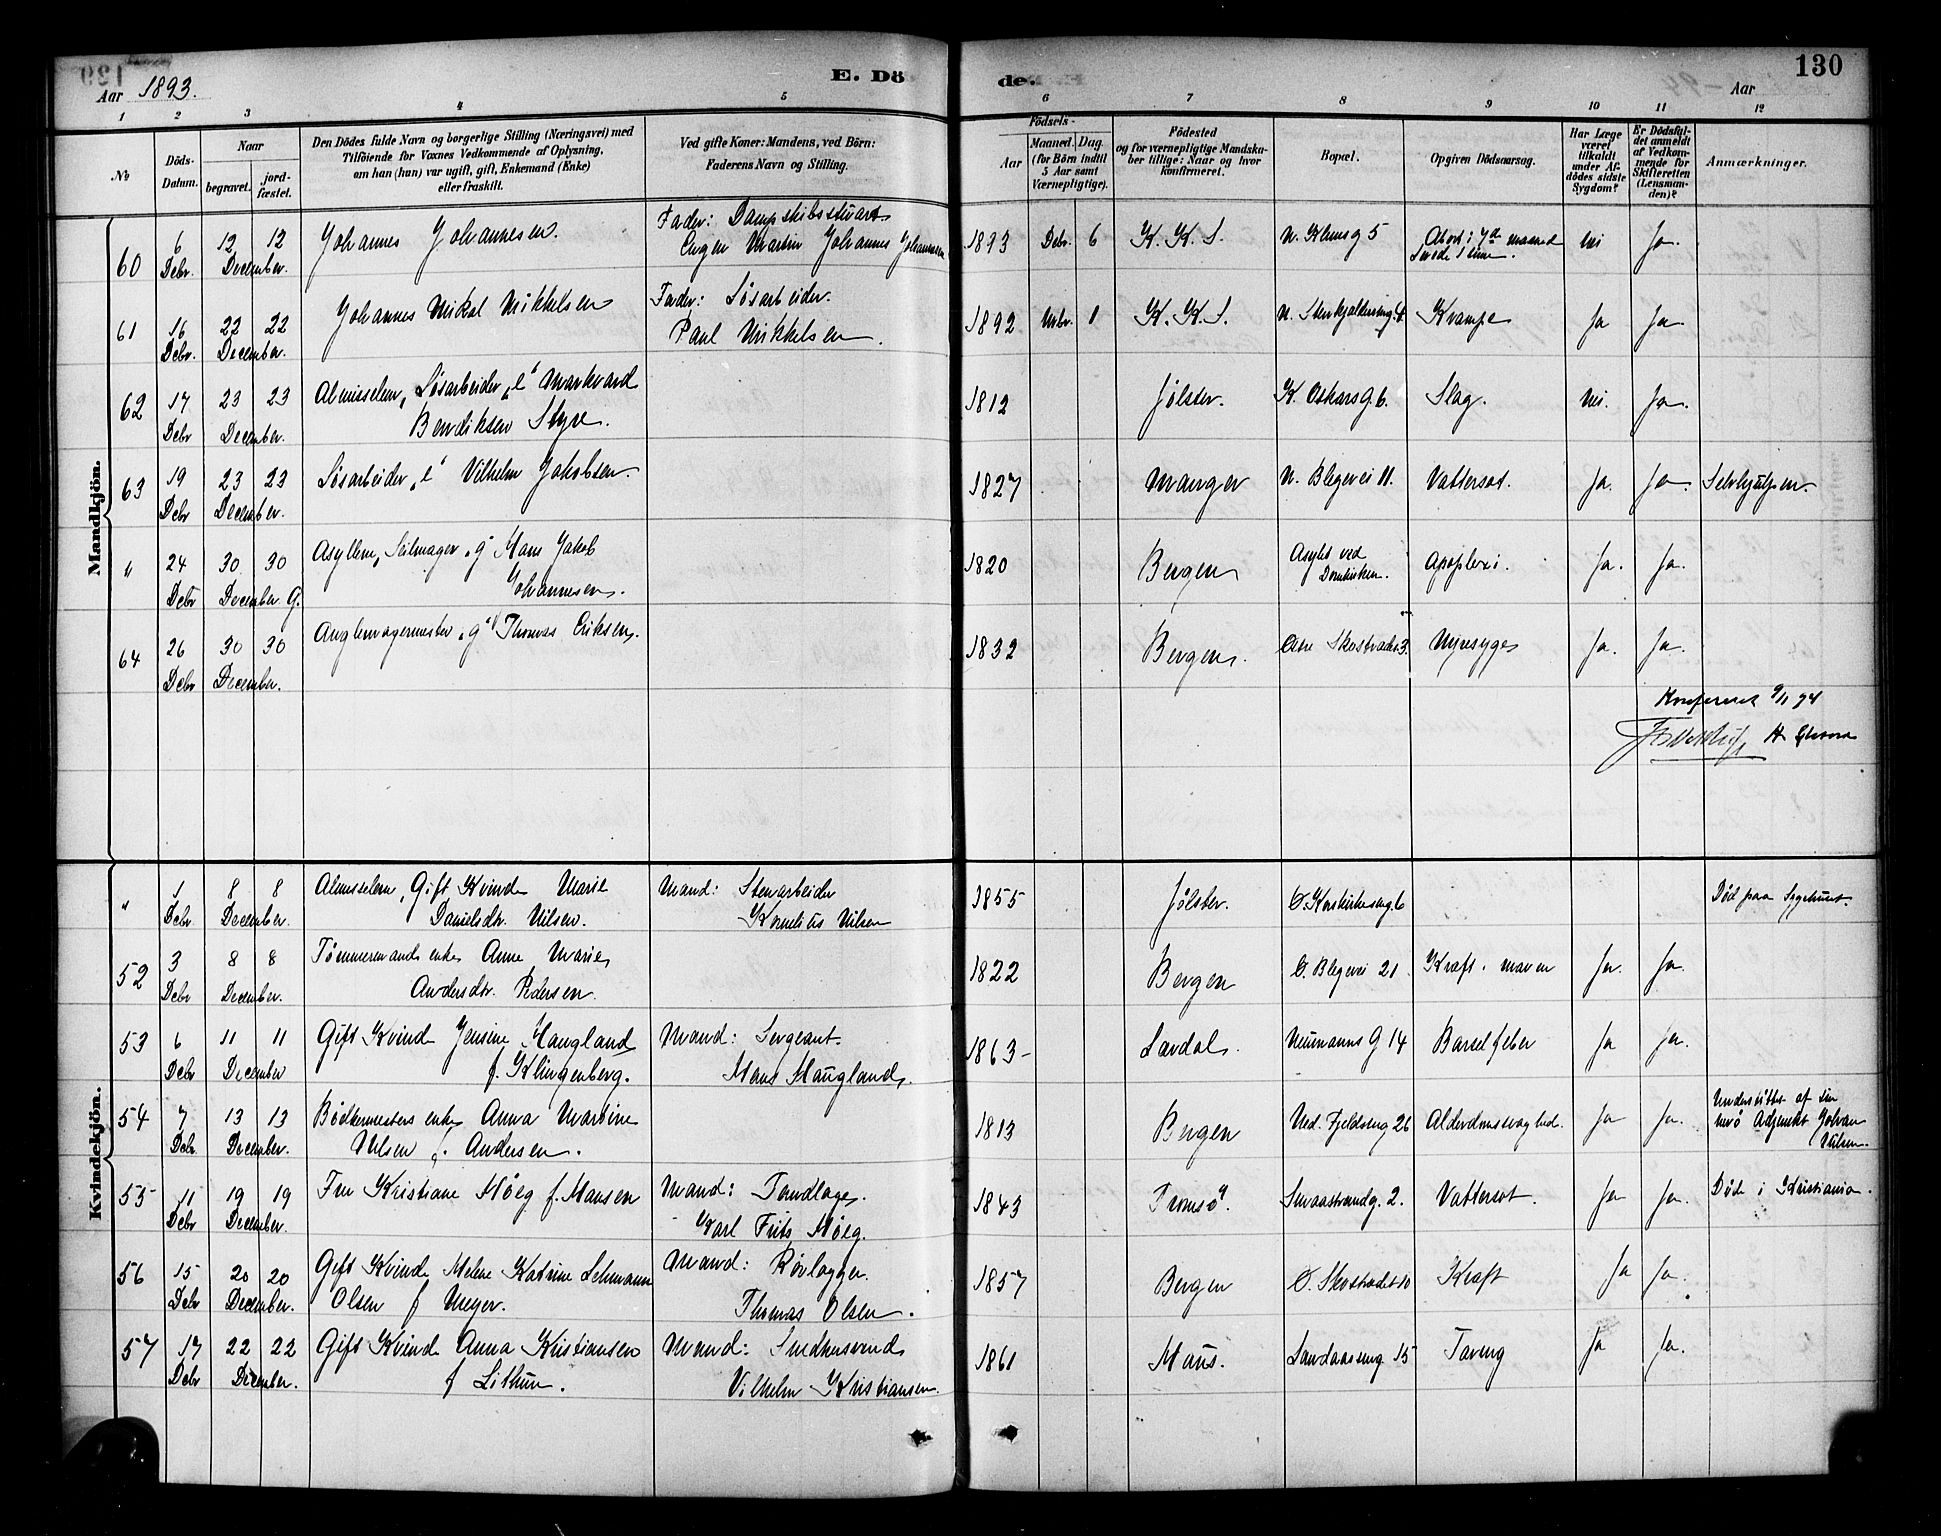 Aar 1893.
E. Dö
de.
130
Aar
1 2 3 4 5 6 7 8 9 10 11 12
No
Döds-
Datum.
Naar
begravet.
jord-
fæstet.
Den Dödes fulde Navn og borgerlige Stilling (Næringsvei) med
Tilföiende for Voxnes Vedkommende af Oplysning,
om han (hun) var ugift, gift, Enkemand (Enke)
eller fraskilt.
Ved gifte Koner: Mandens, ved Börn:
Faderens Navn og Stilling.
Födsels-
Aar
Maaned. Dag.
(for Börn indtil
5 Aar samt
Værnepligtige).
Födested
og for værnepligtige Mandska-
ber tillige: Naar og hvor
konfirmeret.
Bopæl.
Opgiven Dödsaarsag.
Har Læge
været
tilkaldt
under Af-
dödes sidste
Sygdom?
Er Dödsfal-
det anmeldt
af Vedkom-
mende for
Skifteretten
(Lensman-
den)?
Anmærkninger.
Mandkjön.
60 6 Debr. 12 12 December.
Johannes Johannesen.
Fader: Dampskibsstuart
Johannes Johannesen
1893 Debr. 6 K. K. S. 5
Nei Ja.
61 16 Debr. 22 22 December.
Johannes Mikal Mikkelsen
Fader: Løsarbeider.
Paul Mikkelsen.
1892 1 K. K. S. Krampe Ja Ja
62 17 Debr 23 23 December.
Almisselem, Løsarbeider „e“ Markvard
Bendiksen
1812 Jølster. K. Oskars G. 6. Slag. Nei. Ja.
63 19 Debr 23 23 December.
Løsarbeider „e“ Vilhelm Jakobsen
1827 Manger N. Blegevei 11. Vattersot. Ja. Ja. Selvhjulpen.
" 24 Debr 30 30 December G.
Asyllem, Seilmager „g“ Hans Jakob
Johannesen.
1820 Bergen Asylet ved
Domkirken. Apoplexi. Ja. Ja.
64 26 Debr 30 30 December.
„g“ Thomas Eriksen.
1832 Bergen. Øvre Skostrædet 3. Nyresyge Ja. Ja.
Konfereret 9/1 94
Kvindekjön.
" 1 Debr 8 8 December.
Almisselem, Gift Kvinde Marie
Danielsdr. Nilsen.
Mand: Stenarbeider
Kornelius Nilsen
1855 Jølster. Ø. Korskirkealmg. 6 Død paa Sygehuset.
52 3 Debr 8 8 December.
Tømmermands enke Anne Marie
Andersdr. Pedersen.
1822 Bergen Ø. Blegevei 21. Kræft i maven Ja. Ja.
53 6 Debr 11 11 December
Gift Kvinde Jensine Haugland
f. Klingenberg.
Mand: Sergeant
Hans Haugland.
1863 Lærdal. Neumanns G 14 Barselfeber Ja Ja.
54 7 Debr. 13 13 December.
Bødkermesters enke Anna Martine
Nilsen f. Andersen.
1813 Bergen Ned. Fjeldsmg 26 Alderdomssvaghed. Ja Ja.
Understøttet af sin
Adjunkt Johan
Nilsen.
55 11 Debr 19 19 December.
Fru Kristiane Høeg f. Hansen
Mand: Tandlæge
Karl Frits Høeg.
1843 Tromsø. Smaastrandg. 2. Vattersot. Ja Ja. Døde i Kristiania.
56 15 Debr 20 20 December.
Gift Kvinde Helene Katrine Lehmann
Olsen f Meyer.
Mand: Rørlægger
Thomas Olsen.
1857 Bergen Ø. Skostrædet 10 Kræft Ja Ja.
57 17 Debr 22 22 December.
Gift Kvinde Anna Kristiansen
f Lithun.
Mand: Smedeusvend
Vilhelm Kristiansen.
1861 Haus. Landaasvng 15 Tæring Ja Ja.